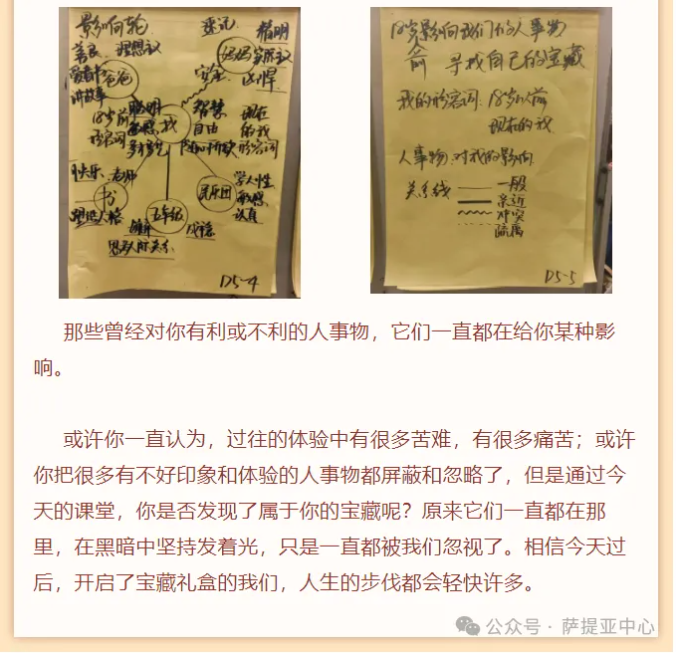 影响轮
善良
理想主义
爱看书
讲故事
爸爸
速记
精明
妈妈
实用主义
安全
18岁前
形容词
聪明
敏感
我
智慧
自由
现在
的我
形容词
快乐
老师
书
塑造人格
五年级
民乐团
学人性
敏感
认真
D5-4
18岁影响我们的人事物
寻找自己的宝藏
我的形容词:18岁以前
现在的我
人事物:对我的影响
关系线
一般
亲近
冲突
疏离
D5-5
那些曾经对你有利或不利的人事物，它们一直都在给你某种影
响。
或许你一直认为，过往的体验中有很多苦难，有很多痛苦；或许
你把很多有不好印象和体验的人事物都屏蔽和忽略了，但是通过今
天的课堂，你是否发现了属于你的宝藏呢？原来它们一直都在那
里，在黑暗中坚持发着光，只是一直都被我们忽视了。相信今天过
后，开启了宝藏礼盒的我们，人生的步伐都会轻快许多。
公众号 · 萨提亚中心